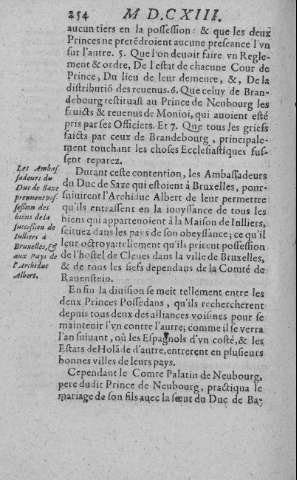 254 M D. CXIII.
aucun tiers en la possession: & que les deux
Princes ne pretẽdroient aucune preseance l'vn
sur l'autre. 5. Que l'on deuoit faire vn Regle-
ment & ordre, De l'estat de chacune Cour de
Prince, Du lieu de leur demeure, &, De la
distributiõ des reuenus. 6. Que celuy de Bran-
debourg restituast au Prince de Neubourg les
fruicts & reuenus de Monioi, qui auoient esté
pris par ses Officiers. Et 7. Que tous les griefs
faicts par ceux de Brandebourg, principale-
ment touchant les choses Ecclesiastiques fus-
sent reparez.
Durant ceste contention, les Ambassadeurs
du Duc de Saxe qui estoient à Bruxelles, pour-
suiuirent l'Archiduc Albert de leur permettre
qu'ils entrassent en la iouyssance de tous les
biens qui appartenoient à la Maison de Iulliers,
scituez dans les pays de son obeyssance; ce qu'il
leur octroya: tellement qu'ils prirent possession
de l'hostel de Cleues dans la ville de Bruxelles,
& de tous les fiefs dependans de la Comté de
Rauenstein.
Les Ambas-
sadeurs du
Duc de Saxe
prennent pos-
session des
biens de la
succession de
Iulliers à
Bruxelles, &
aux Pays de
l'Archiduc
Albert.
En fin la diuision se meit tellement entre les
deux Princes Possedans, qu'ils rechercherent
depuis tous deux des aliances voisines pour se
maintenir l'vn contre l'autre; comme il se verra
l'an suiuant, où les Espagnols d'vn costé, & les
Estats de Holãde d'autre, entrerent en plusieurs
bonnes villes de leurs pays.
Cependant le Comte Palatin de Neubourg,
pere du dit Prince de Neubourg, practiqua le
mariage de son fils auec la sœur du Duc de Ba-